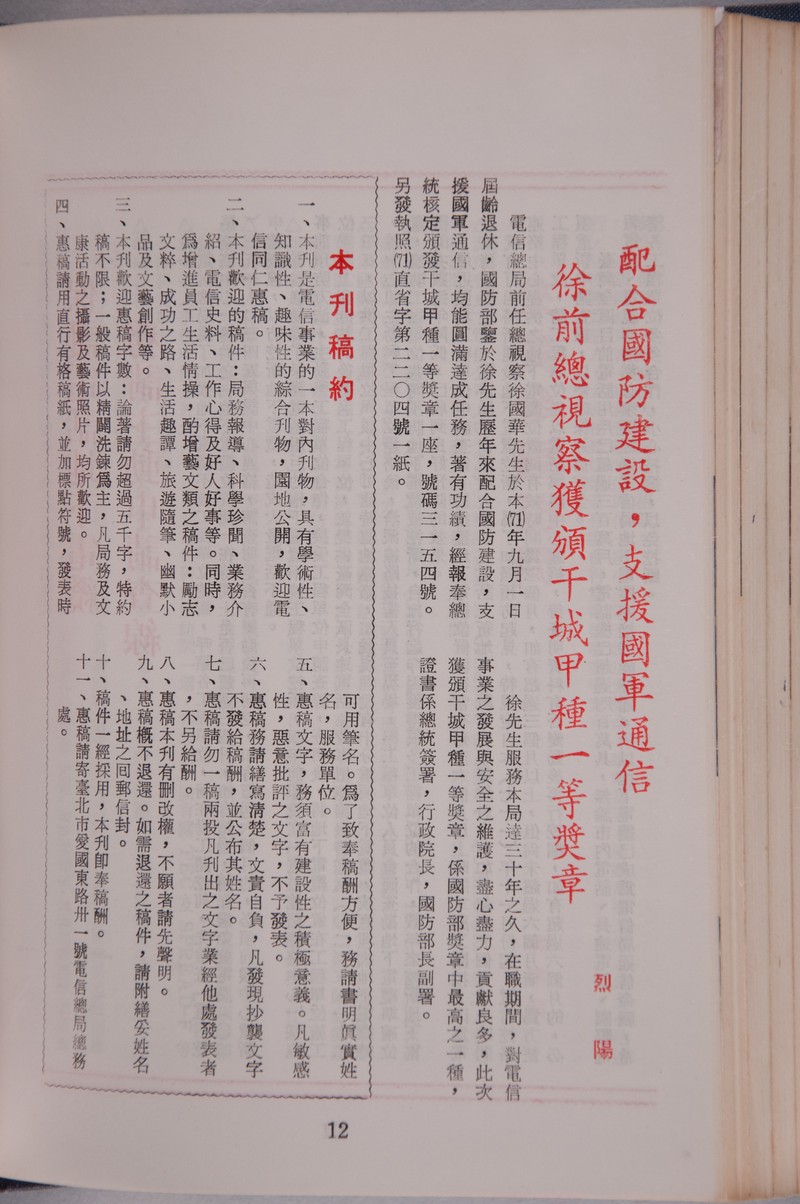 配合國防建設，支援國軍通信
徐前總視察獲頒干城甲種一等獎章
烈　陽
電信總局前任總視察徐國華先生於本(71)年九月一日
屆齡退休，國防部鑒於徐先生歷年來配合國防建設，支
援國軍通信，均能圓滿達成任務，著有功績，經報奉總
統核定頒發干城甲種一等獎章一座，號碼三一五四號。
另發執照(71)直省字第二二〇四號一紙。
徐先生服務本局達三十年之久，在職期間，對電信
事業之發展與安全之維護，盡心盡力，貢獻良多，此次
獲頒干城甲種一等獎章，係國防部獎章中最高之一種，
證書係總統簽署，行政院長，國防部長副署。
本刊稿約
一、本刊是電信事業的一本對內刊物，具有學術性、
知識性、趣味性的綜合刊物，園地公開，歡迎電
信同仁惠稿。
二、本刊歡迎的稿件：局務報導、科學珍聞、業務介
紹、電信史料、工作心得及好人好事等。同時，
爲增進員工生活情操，酌增藝文類之稿件：勵志
文粹、成功之路、生活趣譚、旅遊隨筆、幽默小
品及文藝創作等。
三、本刊歡迎惠稿字數：論著請勿超過五千字，特約
稿不限；一般稿件以精闢洗鍊爲主，凡局務及文
康活動之攝影及藝術照片，均所歡迎。
四、惠稿請用直行有格稿紙，並加標點符號，發表時
可用筆名。爲了致奉稿酬方便，務請書明眞實姓
名，服務單位。
五、惠稿文字，務須富有建設性之積極意義。凡敏感
性，惡意批評之文字，不予發表。
六、惠稿務請繕寫清楚，文責自負，凡發現抄襲文字
不發給稿酬，並公布其姓名。
七、惠稿請勿一稿兩投凡刊出之文字業經他處發表者
，不另給酬。
八、惠稿本刊有刪改權，不願者請先聲明。
九、惠稿概不退還。如需退還之稿件，請附繕妥姓名
、地址之囘郵信封。
十、稿件一經採用，本刊卽奉稿酬。
十一、惠稿請寄臺北市愛國東路卅一號電信總局總務
處。
12